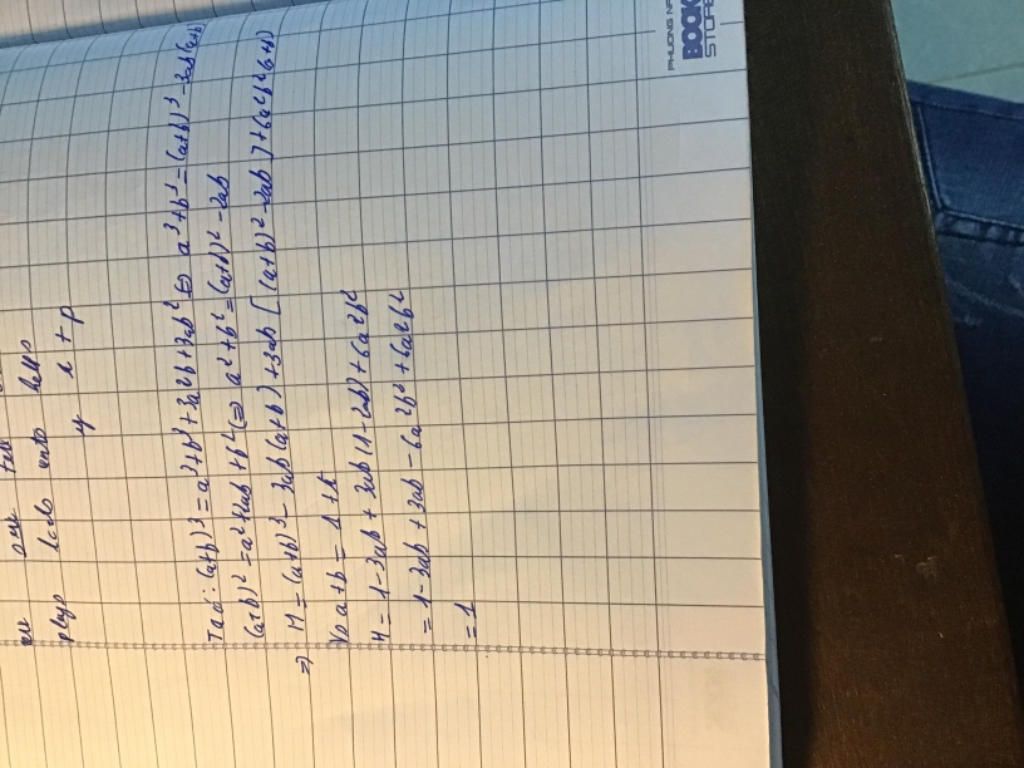 plays lods unto hells
y x + p
Ta có: (a+b)³ = a³+b³+3a²b+3ab² ⇔ a³+b³ = (a+b)³ - 3ab(a+b)
(a+b)² = a²+2ab+b² ⇔ a²+b² = (a+b)² - 2ab
⇒ M = (a+b)³ - 3ab(a+b) + 3ab[(a+b)² - 2ab] + 6a²b²(a+b)
Vì a+b = 1
M = 1 - 3ab + 3ab(1-2ab) + 6a²b²
= 1 - 3ab + 3ab - 6a²b² + 6a²b²
= 1
PHUONG NA
BOOK
STORE